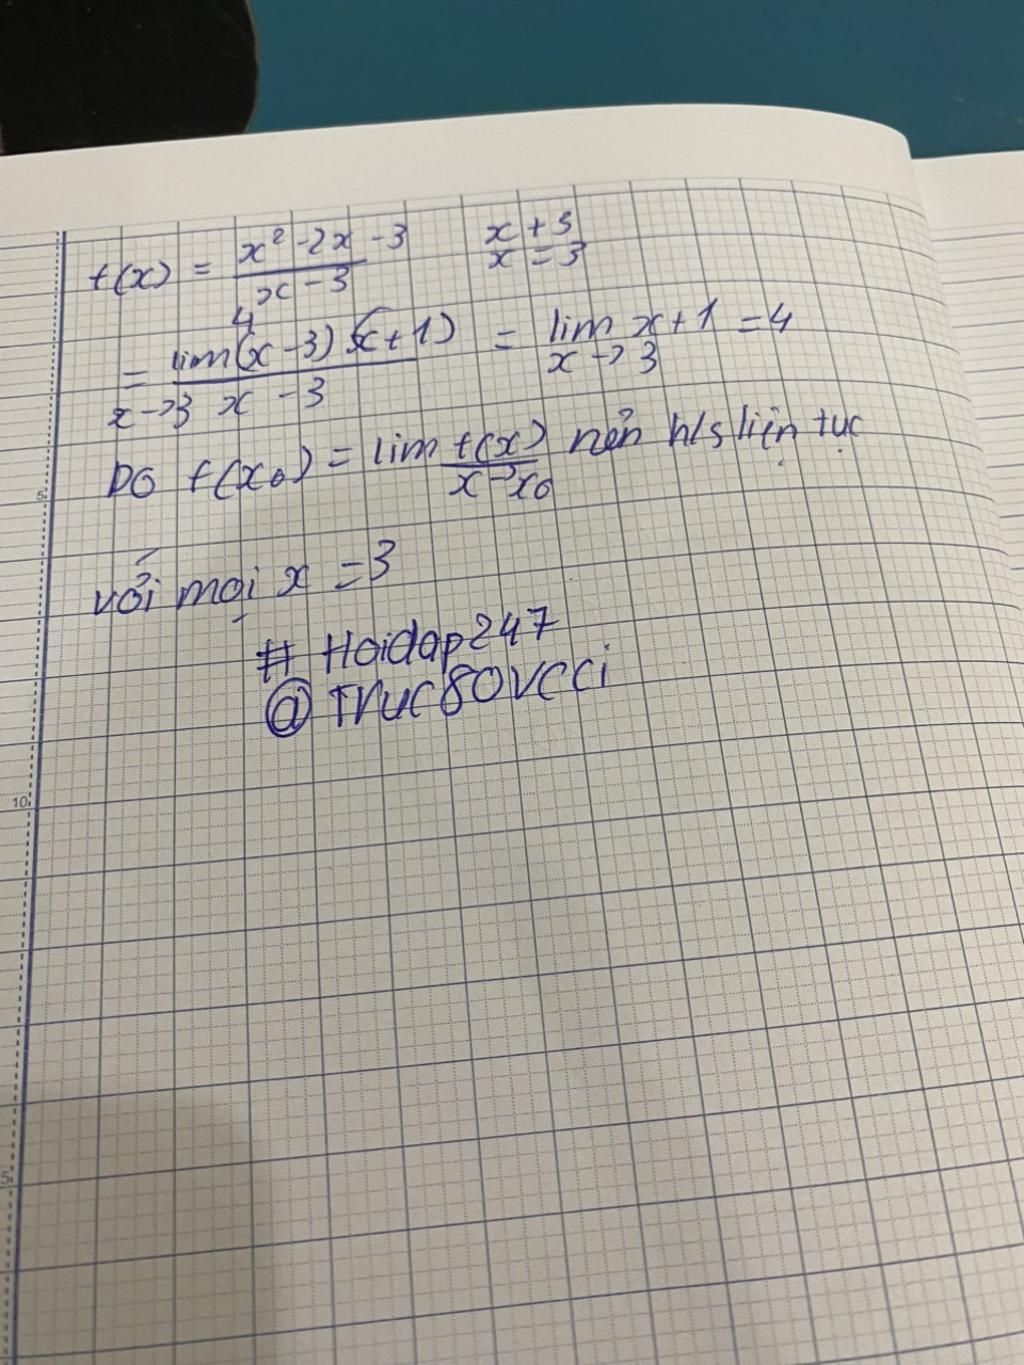 f(x) = x² - 2x - 3 / x - 3 x + 3
4 x = 3
= lim (x - 3)(x + 1) / x - 3 = lim x + 1 = 4
x → 3 x → 3
Do f(x₀) = lim f(x) / x → x₀ nên h/s liện tục
với mọi x = 3
# Hoidap247
@Truc80vcci
5
10